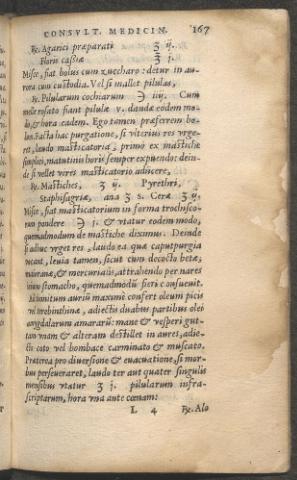 CONSVLT. MEDICIN. 167
℞. Agarici præparati ʒ ij.
Floris cassiæ ʒ j.
Misce, fiat bolus cum zuccharo: detur in au-
rora cum custodia. Vel si mallet pilulas,
℞. Pilularum cochiarum ℈ iiij. Cum
melle rosato fiant pilulæ v. dandæ eodem mo-
do, & hora eadem. Ego tamen præferrem bo-
lum. Facta hac purgatione, si vlterius res vrge-
ret, laudo masticatoria, primo ex mastiche
simplici, matutinis horis semper expuendo: dein-
de si vellet vires masticatorio adiicere,
℞. Mastiches, ʒ ij. Pyrethri,
Staphisagriæ, ana ʒ s. Ceræ ʒ ij,
Misce, fiat masticatorium in forma trochisco-
rum pondere ℈ j. & vtatur eodem modo,
quemadmodum de mastiche diximus. Deinde
si adhuc vrget res, laudo ea quæ caputpurgia
vocant, leuia tamen, sicut cum decocto betæ,
maioranæ, & mercurialis, attrahendo per nares
stomacho, quemadmodũ fieri consueuit.
Ad sonitum auriũ maximè confert oleum picis
vel terebinthinæ, adiectis duabus partibus olei
amygdalarum amararũ: mane & vesperi gut-
tam vnam & alteram destillet in aures, adie-
cto coto vel bombace carminato & muscato.
Præterea pro diuersione & euacuatione, si mor-
bus perseueraret, laudo ter aut quater singulis
mensibus vtatur ʒ j. pilularum infra-
scriptarum, hora vna ante cœnam:
L 4 ℞. Alo